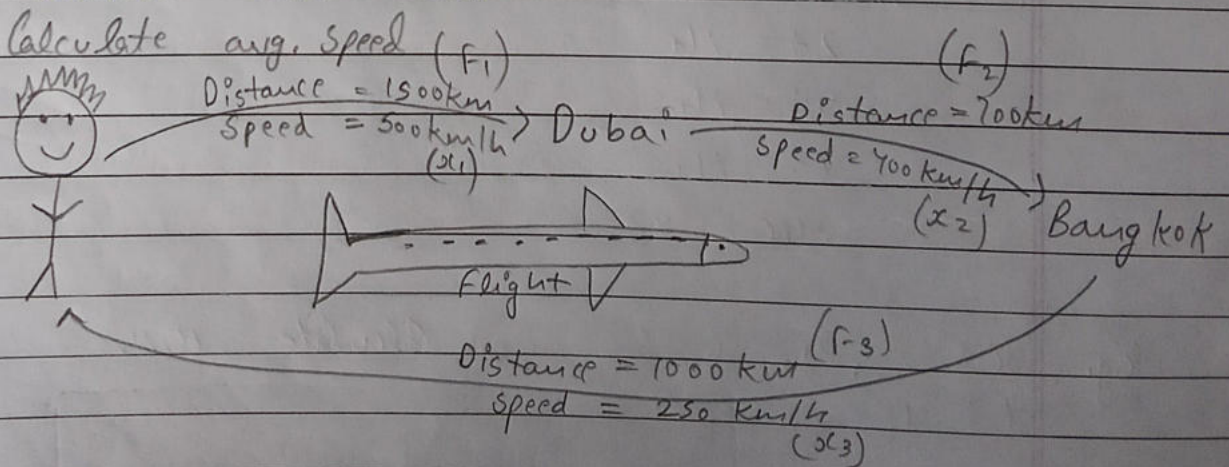 Calculate avg. Speed (F1)
(F2)
Distance = 1500km
Speed = 500km/h
(x1)
Dubai
Distance = 700km
Speed = 400km/h
(x2)
Bangkok
Flight
(F3)
Distance = 1000 km
Speed = 250 km/h
(x3)